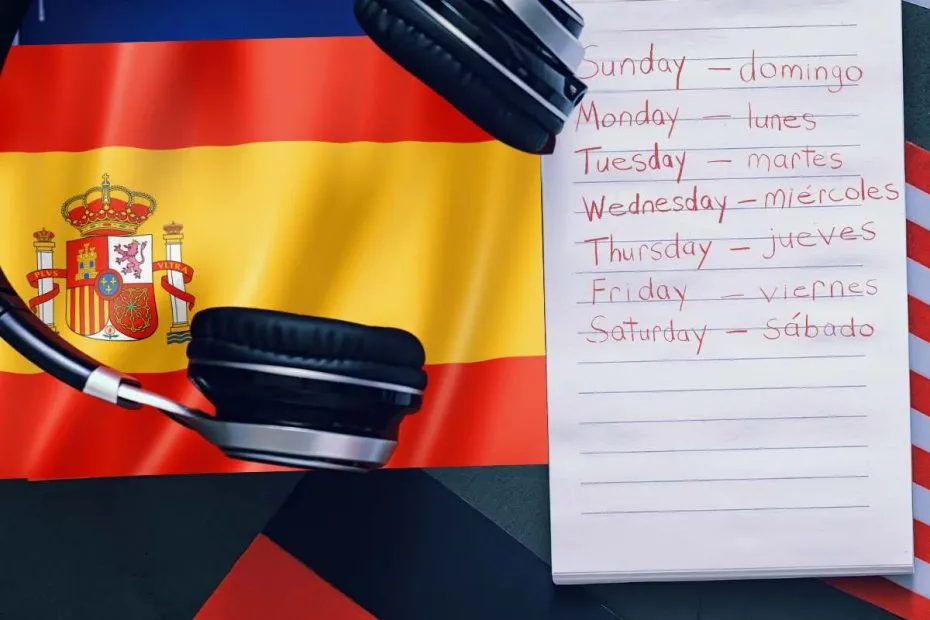 PLVS VLTRA
Sunday – domingo
Monday – lunes
Tuesday – martes
Wednesday – miércoles
Thursday – jueves
Friday – viernes
Saturday – sábado